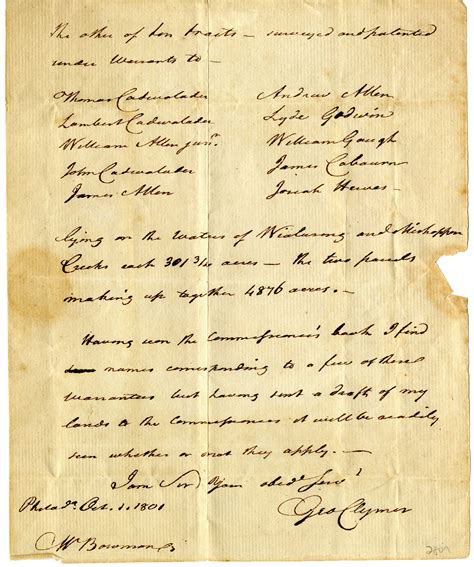 The other of ten tracts – surveyed and patented
under Warrants to –
Thomas Cadwalader Andrew Allen
Lambert Cadwalader Lyde Godwin
William Allen junr. William Gough
John Cadwalader James Cobourn
James Allen Josiah Hewes –
lying on the Waters of Wialusing and Meshoppen
Creeks each 301 3/4 acres – the two parcels
making up together 4876 acres. –
Having seen the Commissioner's book I find
names corresponding to a few of these
warrantees but having sent a draft of my
lands to the Commissioners it will be readily
seen whether or not they apply. –
I am Sir Your obedt. Servt
Geo Clymer
Philada. Oct. 1. 1801
Mr Bowman